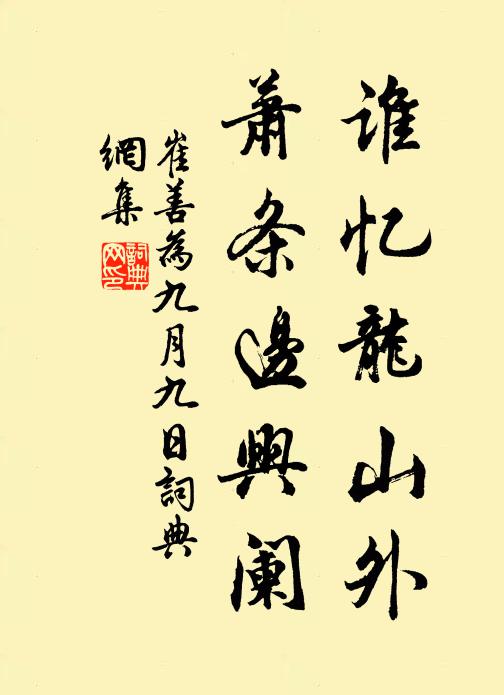 谁忆龍山外
萧条邊興阑
崔善為九月九日詞典
網集
詞典网印